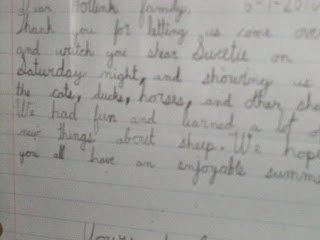 family,
thank you for letting us come over
and watch you shear Sweetie on
Saturday night, and showing us
the cats, ducks, horses, and other
We had fun and learned a lot of
new things about sheep. We hope
you all have an enjoyable